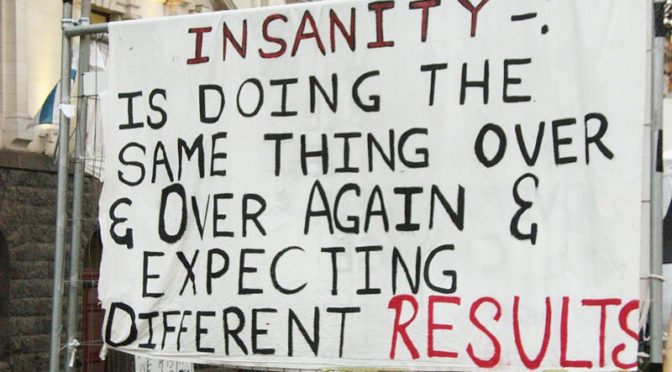 INSANITY-:
IS DOING THE
SAME THING OVER
& OVER AGAIN &
EXPECTING
DIFFERENT RESULTS